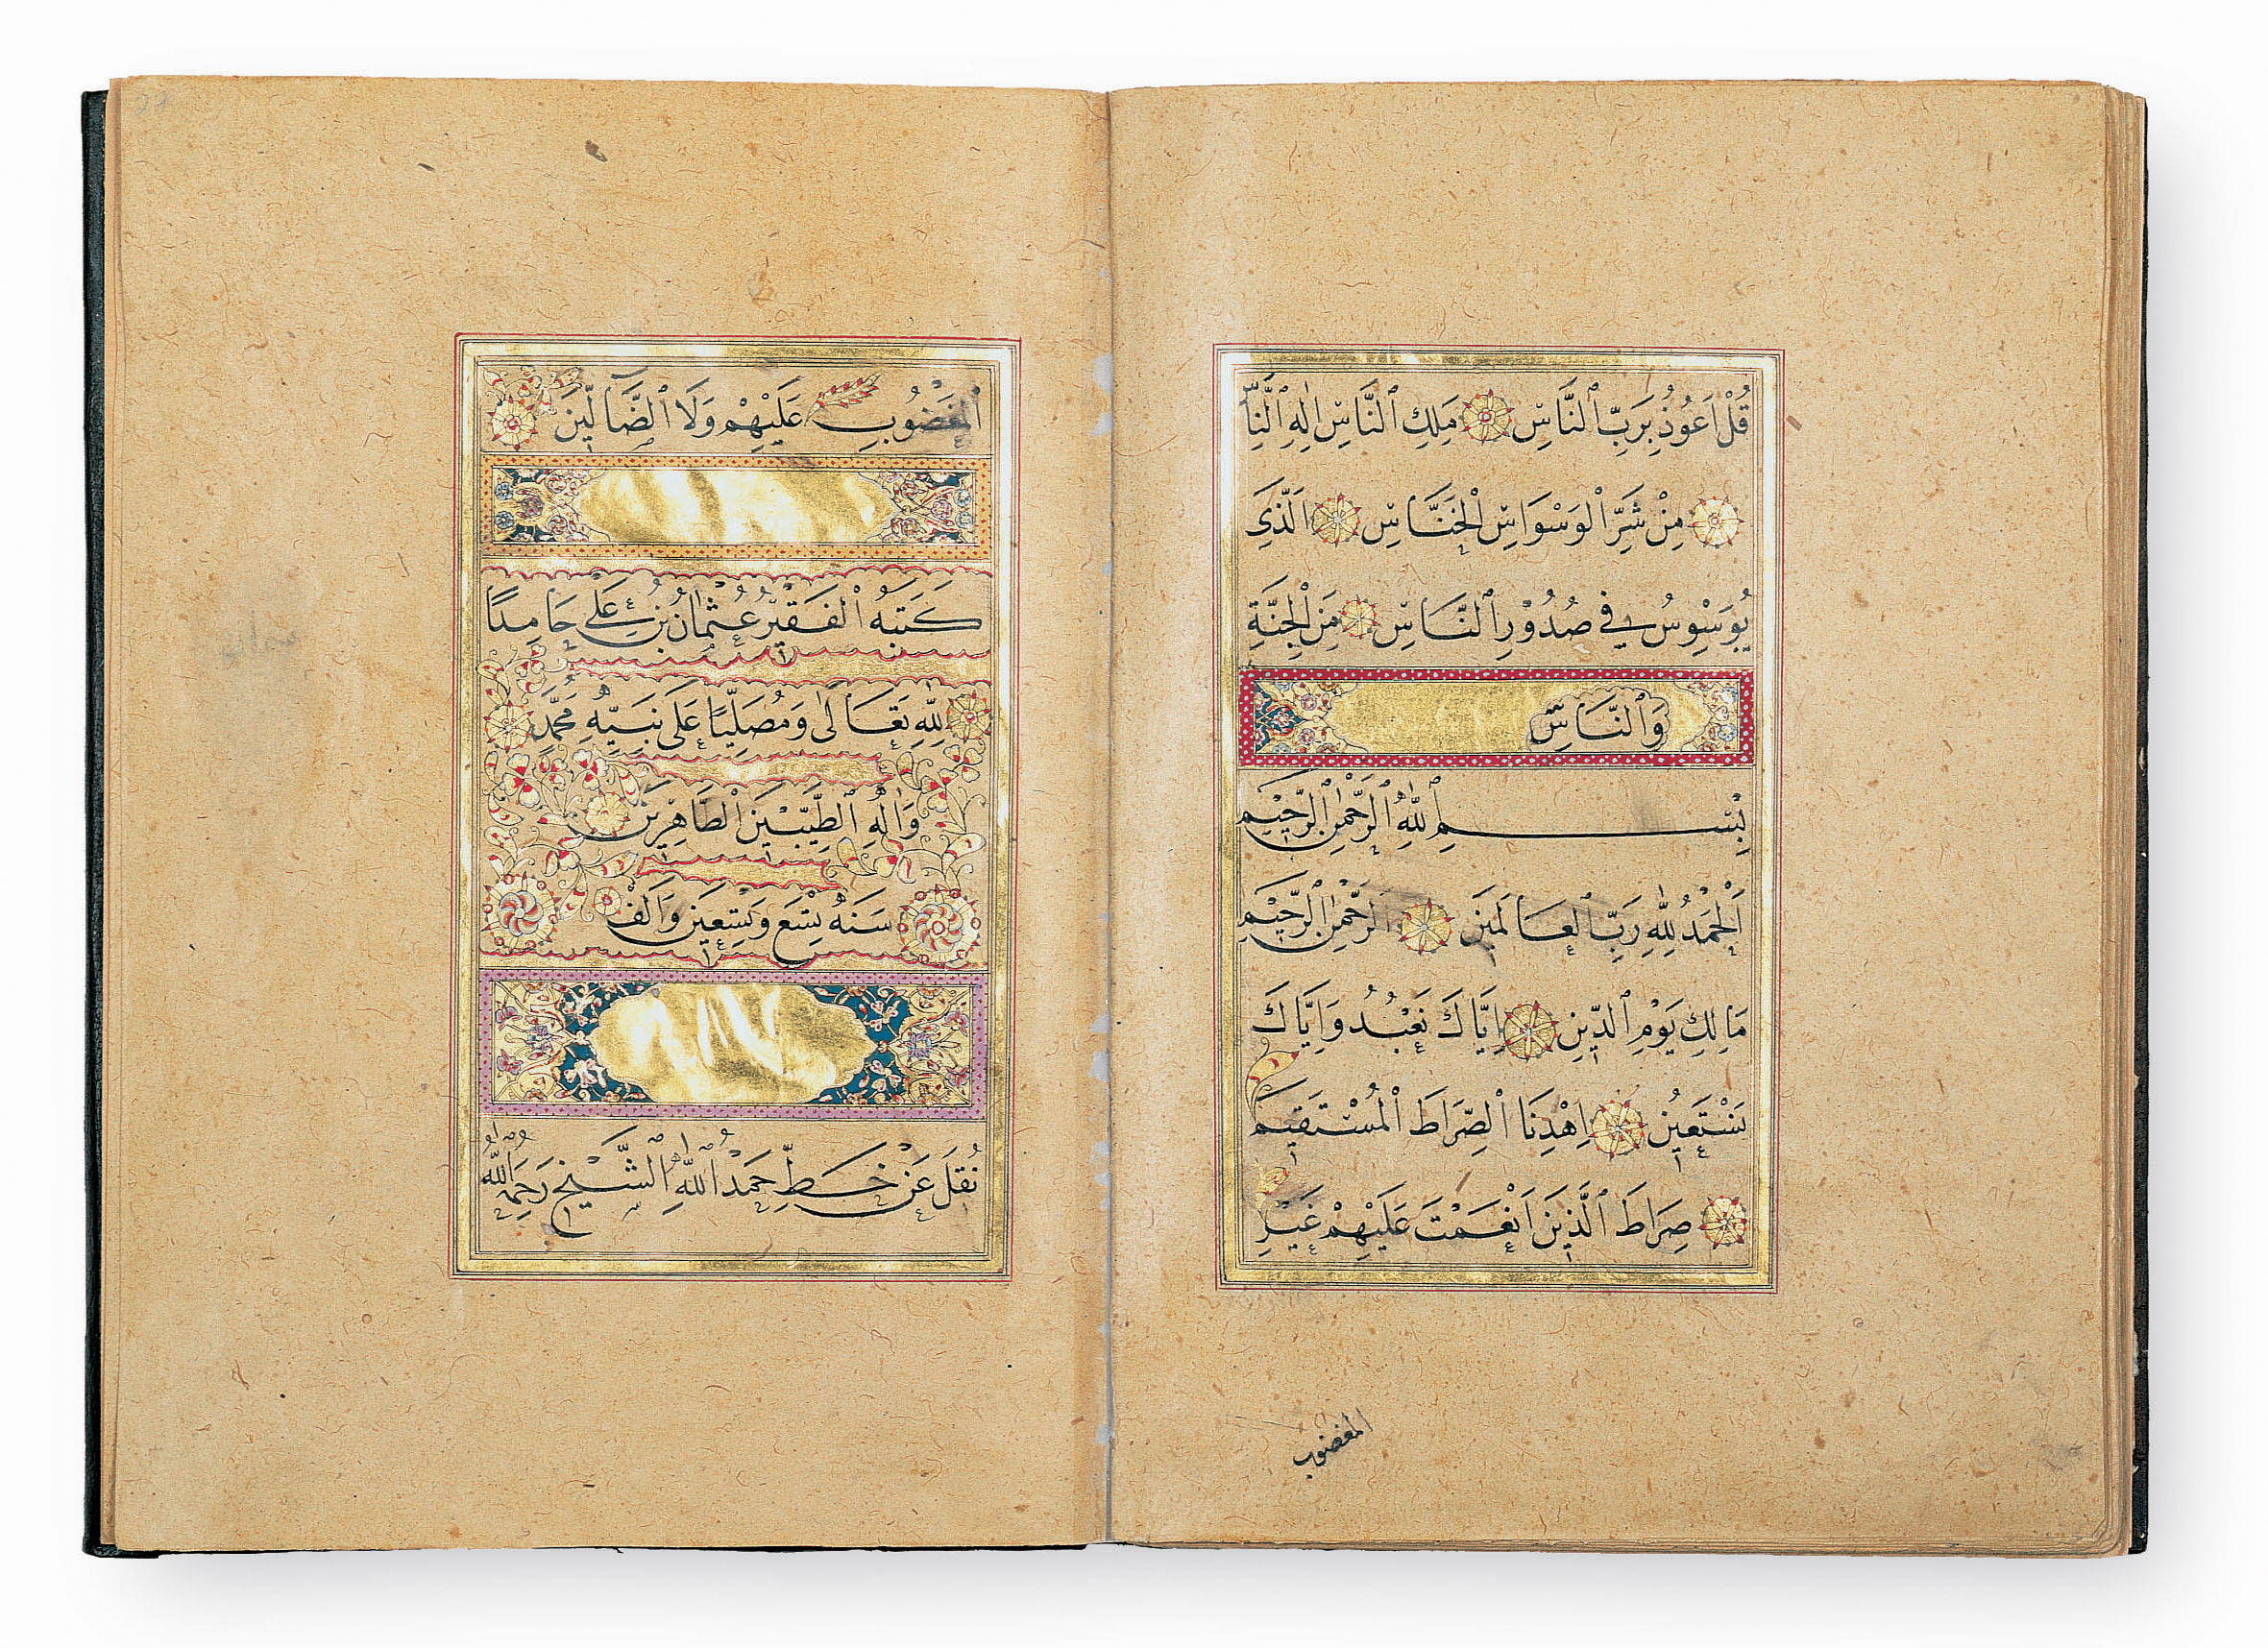 قُلْ اَعُوذُ بِرَبِّ ٱلنَّاسِ مَلِكِ ٱلنَّاسِ اِلٰهِ ٱلنَّاسِ
مِنْ شَرِّ ٱلْوَسْوَاسِ ٱلْخَنَّاسِ اَلَّذِى
يُوَسْوِسُ فِى صُدُورِ ٱلنَّاسِ مِنَ ٱلْجِنَّةِ
وَٱلنَّاسِ
بِسْمِ ٱللّٰهِ ٱلرَّحْمٰنِ ٱلرَّحِيمِ
اَلْحَمْدُ لِلّٰهِ رَبِّ ٱلْعَالَمِينَ ٱلرَّحْمٰنِ ٱلرَّحِيمِ
مَالِكِ يَوْمِ ٱلدِّينِ اِيَّاكَ نَعْبُدُ وَاِيَّاكَ
نَسْتَعِينُ اِهْدِنَا ٱلصِّرَاطَ ٱلْمُسْتَقِيمَ
صِرَاطَ ٱلَّذِينَ اَنْعَمْتَ عَلَيْهِمْ غَيْرِ
المغضوب
ٱلْمَغْضُوبِ عَلَيْهِمْ وَلَا ٱلضَّآلِّينَ
كَتَبَهُ ٱلْفَقِيرُ عُثْمَانُ بْنُ عَلِي حَامِدًا
لِلّٰهِ تَعَالَى وَمُصَلِّيًا عَلَى نَبِيِّهِ مُحَمَّدٍ
وَاٰلِهِ ٱلطَّيِّبِينَ ٱلطَّاهِرِينَ
سَنَهُ تِسْعٍ وَتِسْعِينَ وَاَلْفْ
نُقِلَ عَنْ خَطِّ حَمْدُ ٱللّٰهِ ٱلشَّيْخِ رَحِمَهُ ٱللّٰهُ